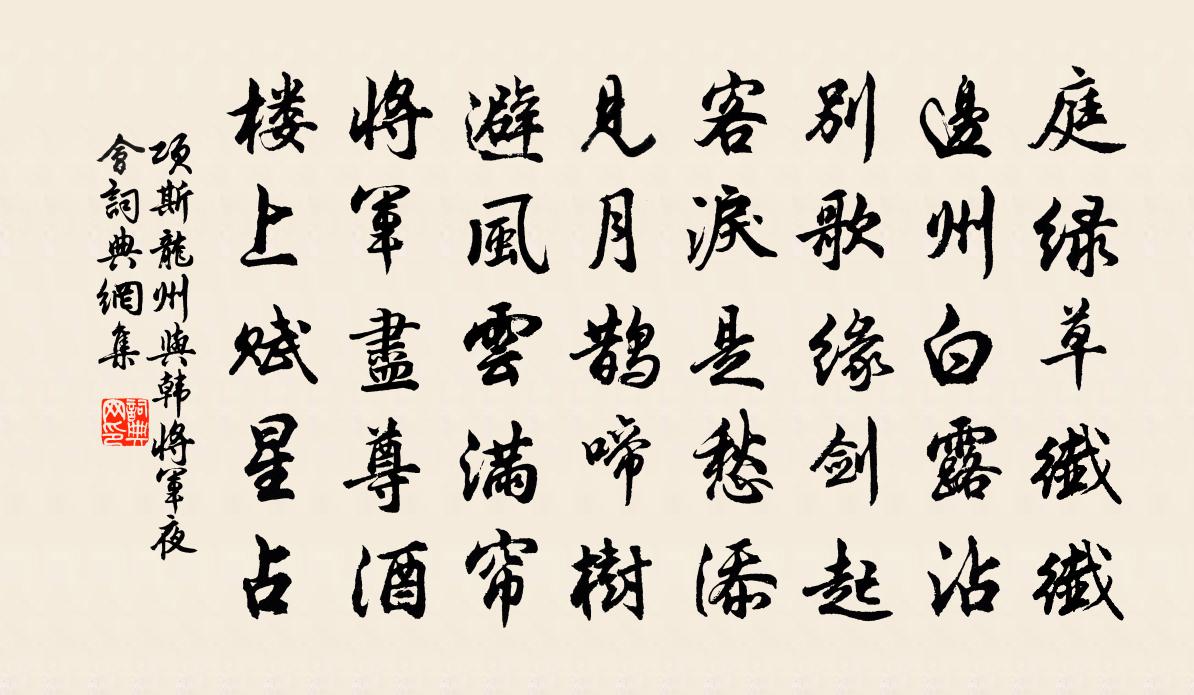 庭绿草纖纖
邊州白露沾
別歌缘剑起
客淚是愁添
見月鹊啼樹
避風雲满帘
將軍盡尊酒
楼上赋星占
项斯龍州與韩將軍夜
會詞典網集
詞典
网印